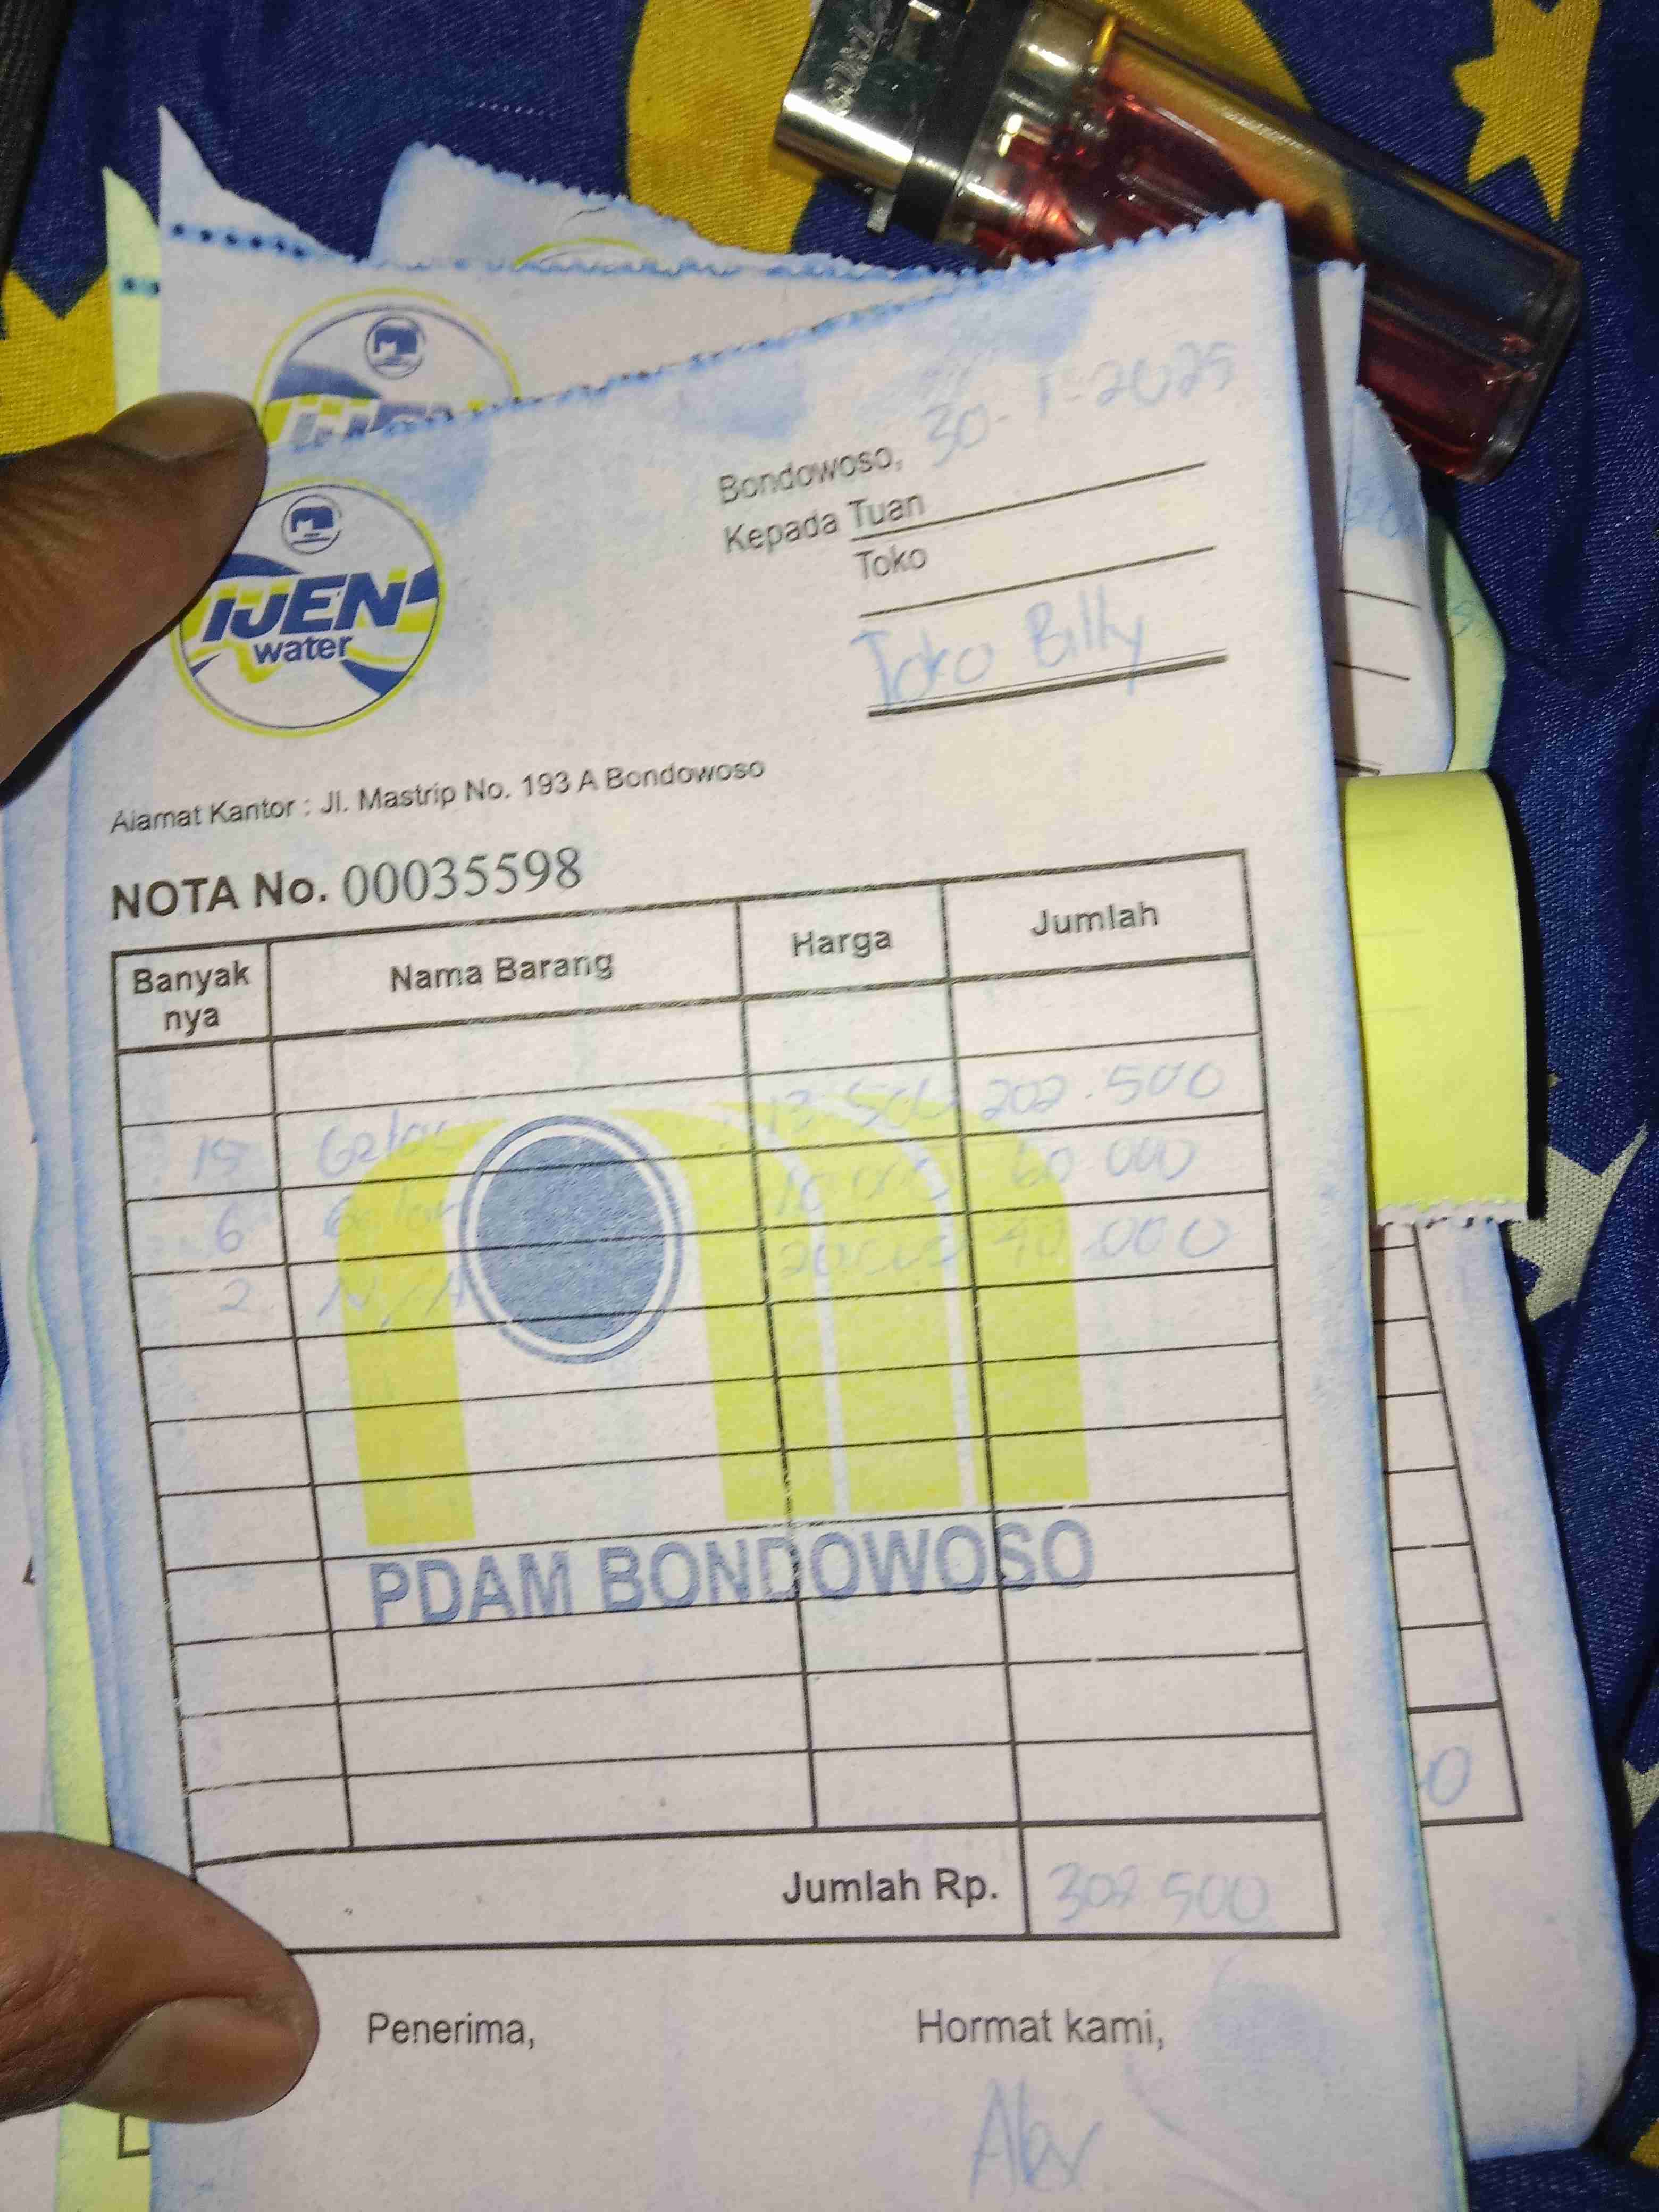 IJEN
IJEN
water
Bondowoso, 30-1-2025
Kepada Tuan
Toko
Toko Billy
Alamat Kantor : Jl. Mastrip No. 193 A Bondowoso
NOTA No. 00035598
Banyak nya Nama Barang Harga Jumlah
15 Gelas 13.500 202.500
6 Gelas 10 000 60 000
2 N/A 20.000 40.000
PDAM BONDOWOSO
Jumlah Rp. 302 500
Penerima, Hormat kami,